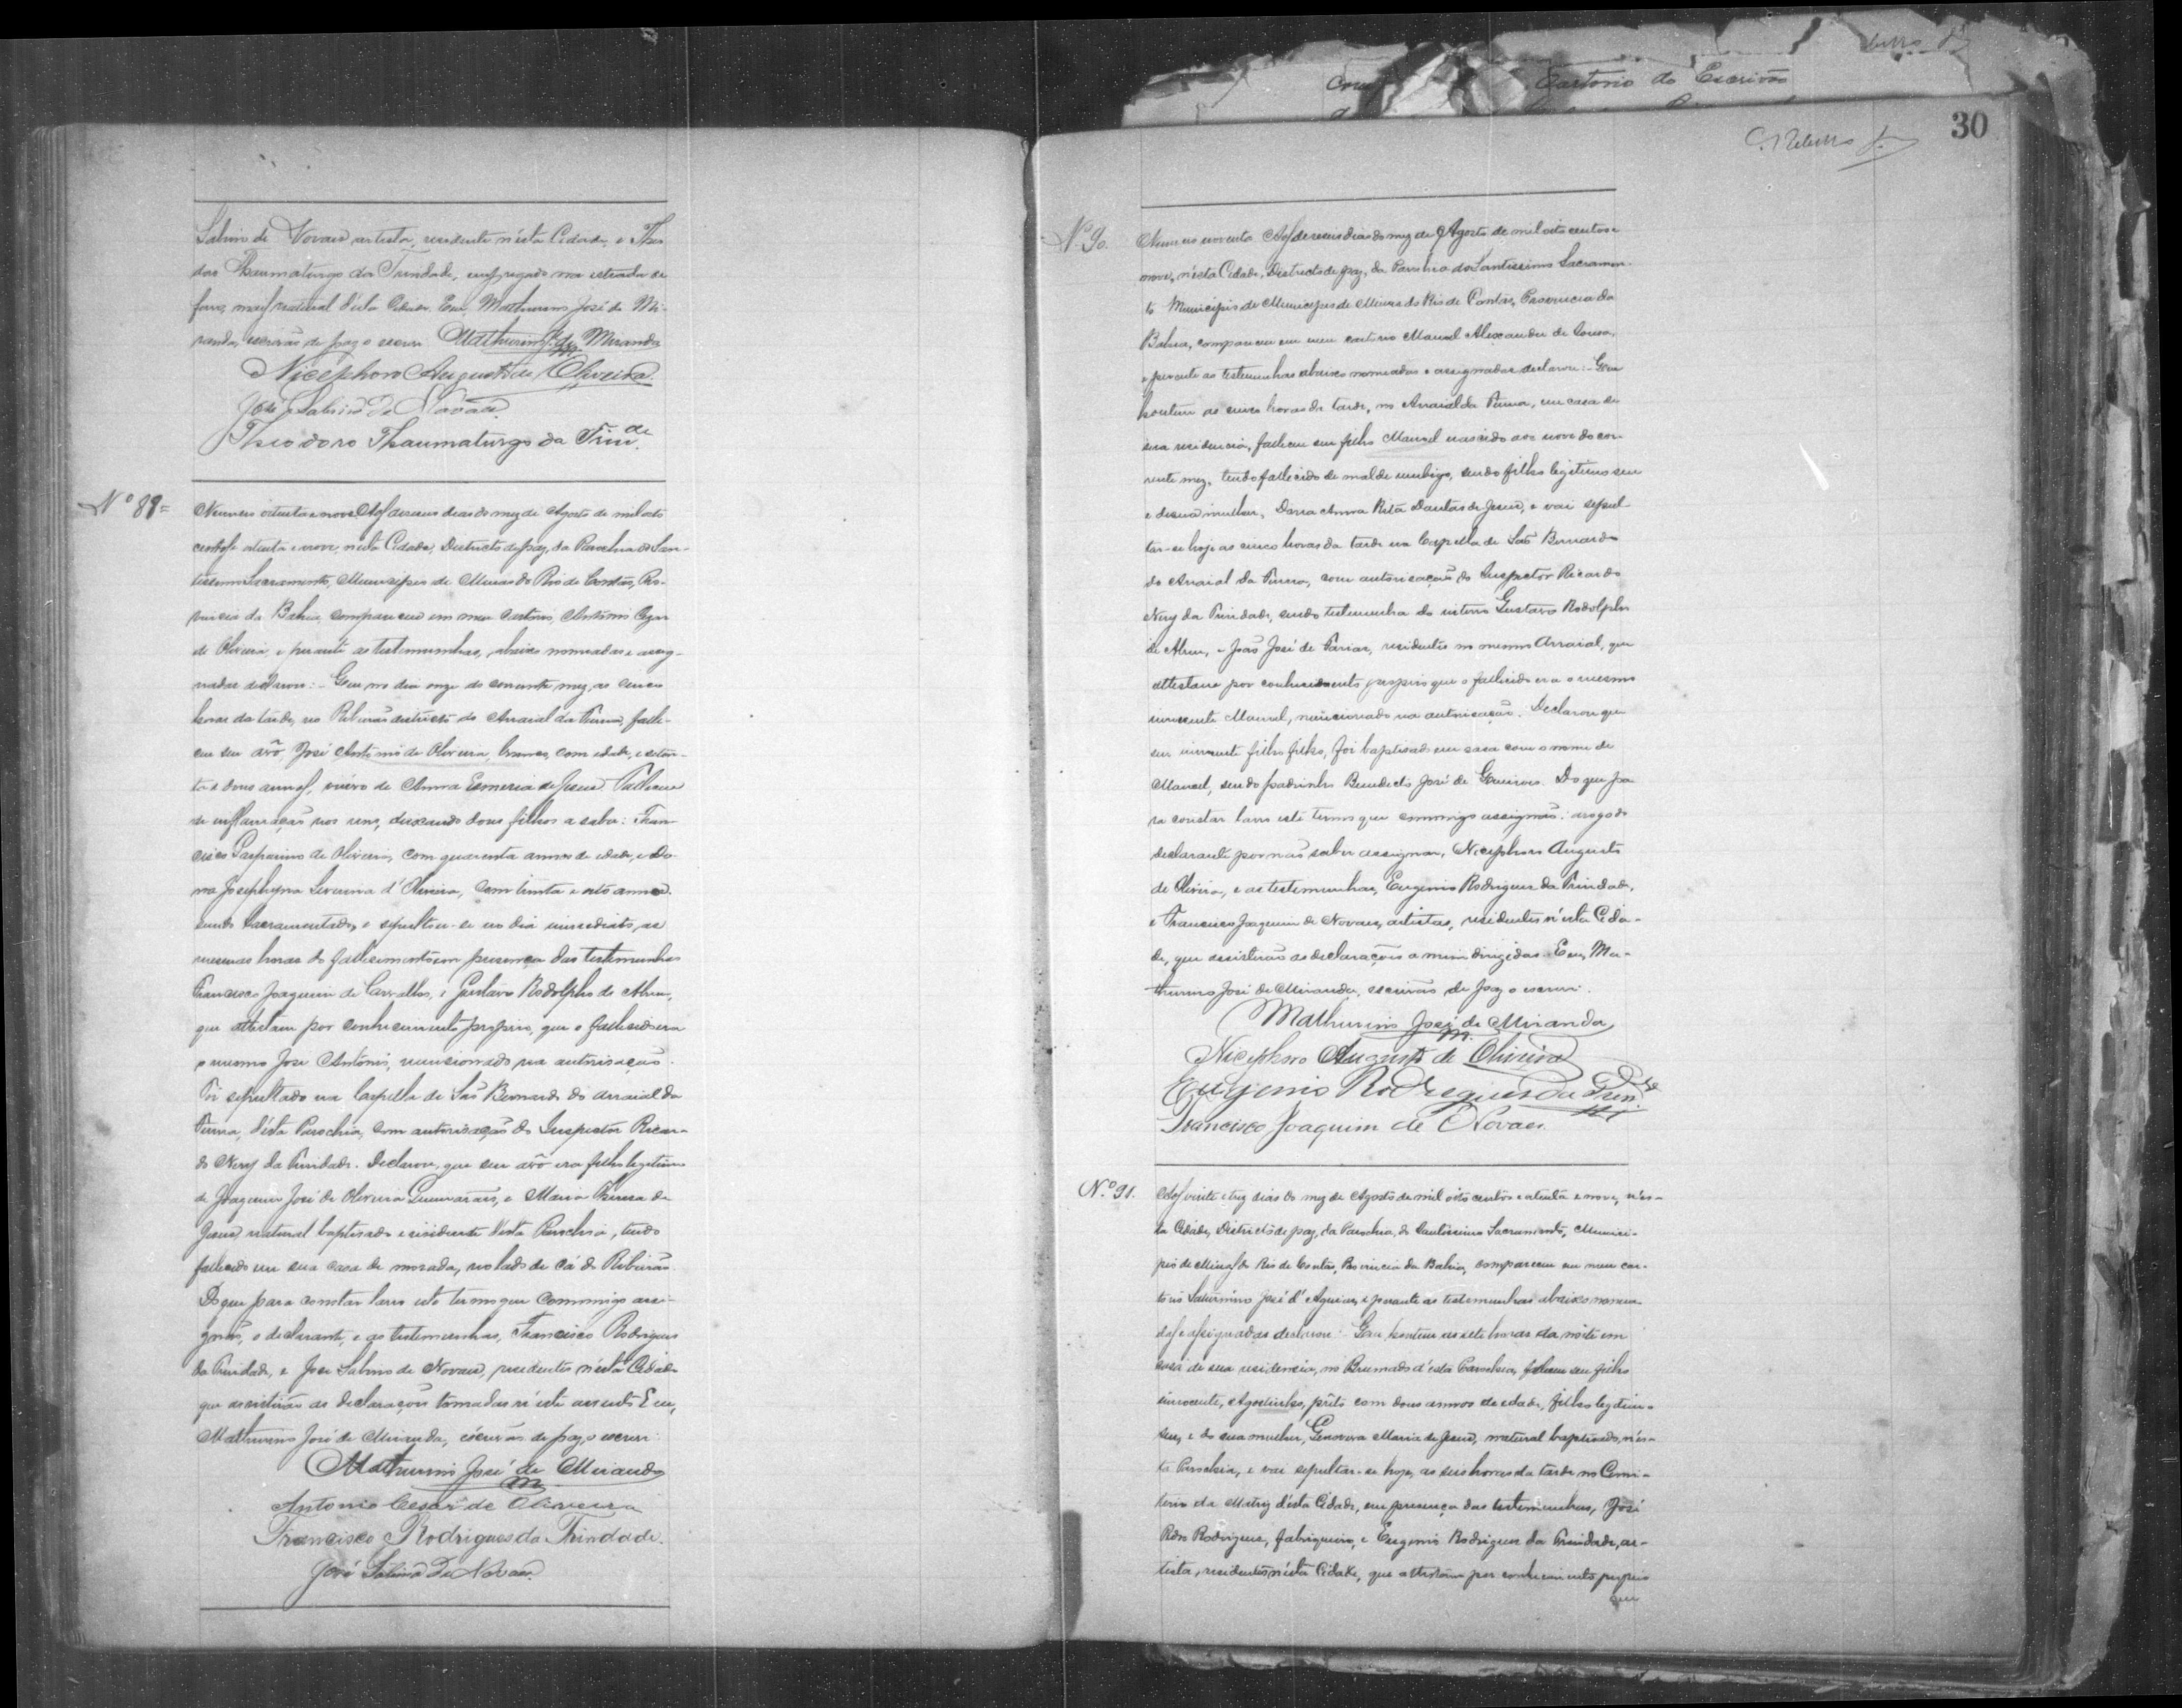 Cartorio do Escrivão
30
Sabino de Novaes artista, residente n'esta Cidade, e Theo
doro Thaumaturgo da Trindade, empregado na estrada de
ferro, mas natural d'esta Cidade. Eu, Mathurino José de Mi-
randa, escrivão de paz o escrevi. Mathurino José de Miranda
Nicéphoro Augusto de Oliveira
José Sabino de Novaes
Theodoro Thaumaturgo da Trin.de
Nº 89=
Numero oitenta e nove. Aos deseseis dias do mez de Agosto de mil oito
centos e oitenta e nove, nesta Cidade, Districto de paz, da Parochia do San-
tissimo Sacramento, Municipio de Minas do Rio de Contas, Pro-
vincia da Bahia, compareceu em meu Cartorio, Antonio Cezar
de Oliveira, e perante as testemunhas, abaixo nomeadas e assig-
nadas declarou: - Que no dia onze do corrente mez, as cinco
horas da tarde, no Ribeirão districto do Arraial da Furna, falle-
ceu seu avô, José Antonio de Oliveira, branco, com idade, e seten-
ta e dous annos, viuvo de Anna Esmeria de Jesus. Falleceu
de inflammação nos rins, deixando dous filhos a saber: Fran-
cisco de Oliveira, com quarenta annos de idade, e Do-
na Josephyna d'Oliveira, com trinta e oito annos.
sendo Sacramentado, e sepultou-se no dia immediato, as
mesmas horas do fallecimento em presença das testemunhas
Francisco Joaquim de Carvalho, e Gustavo Rodolpho de Abreu,
que attestam por conhecimento proprio, que o fallecido era
o mesmo José Antonio, mencionado na autorisação.
Foi sepultado na Capella de São Bernardo do arraial da
Furna, d'esta Parochia, com autorisação do Inspector Ricar-
do Nery da Trindade. Declarou, que seu avô era filho legitimo
de Joaquim José de Oliveira Guimarães, e Maria Thereza de
Jesus, natural baptisado e residente desta Parochia, tendo
fallecido em sua casa de morada, no lado de cá do Ribeirão.
Do que para constar lavro este termo que commigo assi-
gnão, o declarante, e as testemunhas, Francisco Rodrigues
da Trindade, e José Sabino de Novaes, residentes n'esta Cidade
que assistirão as declarações tomadas n'este assento. Eu,
Mathurino José de Miranda, escrivão de paz, o escrevi.
Mathurino José de Miranda
Antonio Cesar de Oliveira
Francisco Rodrigues da Trindade.
José Sabino de Novaes
Nº 90.
Numero noventa. Aos deseseis dias do mez de Agosto de mil oito centos e
nove, n'esta Cidade, Districto de paz, da Parochia do Santissimo Sacramen-
to Municipio de Municipio de Minas do Rio de Contas, Provincia da
Bahia, compareceu em meu cartorio Manoel Alexandre de Sousa,
e perante as testemunhas abaixo nomeadas e assignadas declarou: - Que
hontem as cinco horas da tarde, no Arraial da Furna, em casa de
sua residencia, falleceu seu filho Manoel nascido aos nove do cor-
rente mez, tendo fallecido de mal de umbigo, sendo filho legitimo seu
e de sua mulher, Dona Anna Rita Dantas de Jesus, e vai sepul-
tar-se hoje as cinco horas da tarde na Capella de São Bernardo
do Arraial da Furna, com autorisação do Inspector Ricardo
Nery da Trindade, sendo testemunha do enterro Gustavo Rodolpho
de Abreu, e João José de Farias, residentes no mesmo Arraial, que
attestam por conhecimento proprio que o fallecido era o mesmo
innocente Manoel, mencionado na autorisação. Declarou que
seu innocente filho filho, foi baptisado em casa com o nome de
Manoel, sendo padrinho Benedicto José de Do que pa
ra constar lavro este termo que commigo assignão: a rogo do
declarante por não saber assignar, Nicephoro Augusto
de Oliveira, e as testemunhas, Eugenio Rodrigues da Trindade,
e Francisco Joaquim de Novaes, artistas, residentes n'esta Cida-
de, que assistirão as declarações a mim dirigidas. Eu, Ma-
thurino José de Miranda, escrivão de paz o escrevi.
Mathurino José de Miranda
Nicephoro Augusto de Oliveira
Eugenio Rodrigues da Trin.de
Francisco Joaquim de Novaes.
N.º 91.
Aos vinte e tres dias do mez de Agosto de mil oito centos e oitenta e nove, n'es-
ta Cidade, Districto de paz, da Parochia, do Santissimo Sacramento, Munici-
pio de Minas do Rio de Contas, Provincia da Bahia, compareceu em meu car-
torio Saturnino José d'Aguiar, e perante as testemunhas abaixo nomea-
das e assignadas declarou: - Que, hontem as sete horas da noite em
casa de sua residencia, no Brumado d'esta Parochia, falleceu seu filho
innocente, Agostinho, prêto com dous annos de edade, filho legitimo
seu, e de sua mulher, Genoveva Maria de Jesus, natural baptisado, n'es-
ta Parochia, e vai sepultar-se hoje, as seis horas da tarde no Cemi-
terio da Matriz d'esta Cidade, em presença das testemunhas, José
Rodrigues, fabriqueiro, e Eugenio Rodrigues da Trindade, ar-
tista, residentes n'esta Cidade, que attestam por conhecimento proprio
que